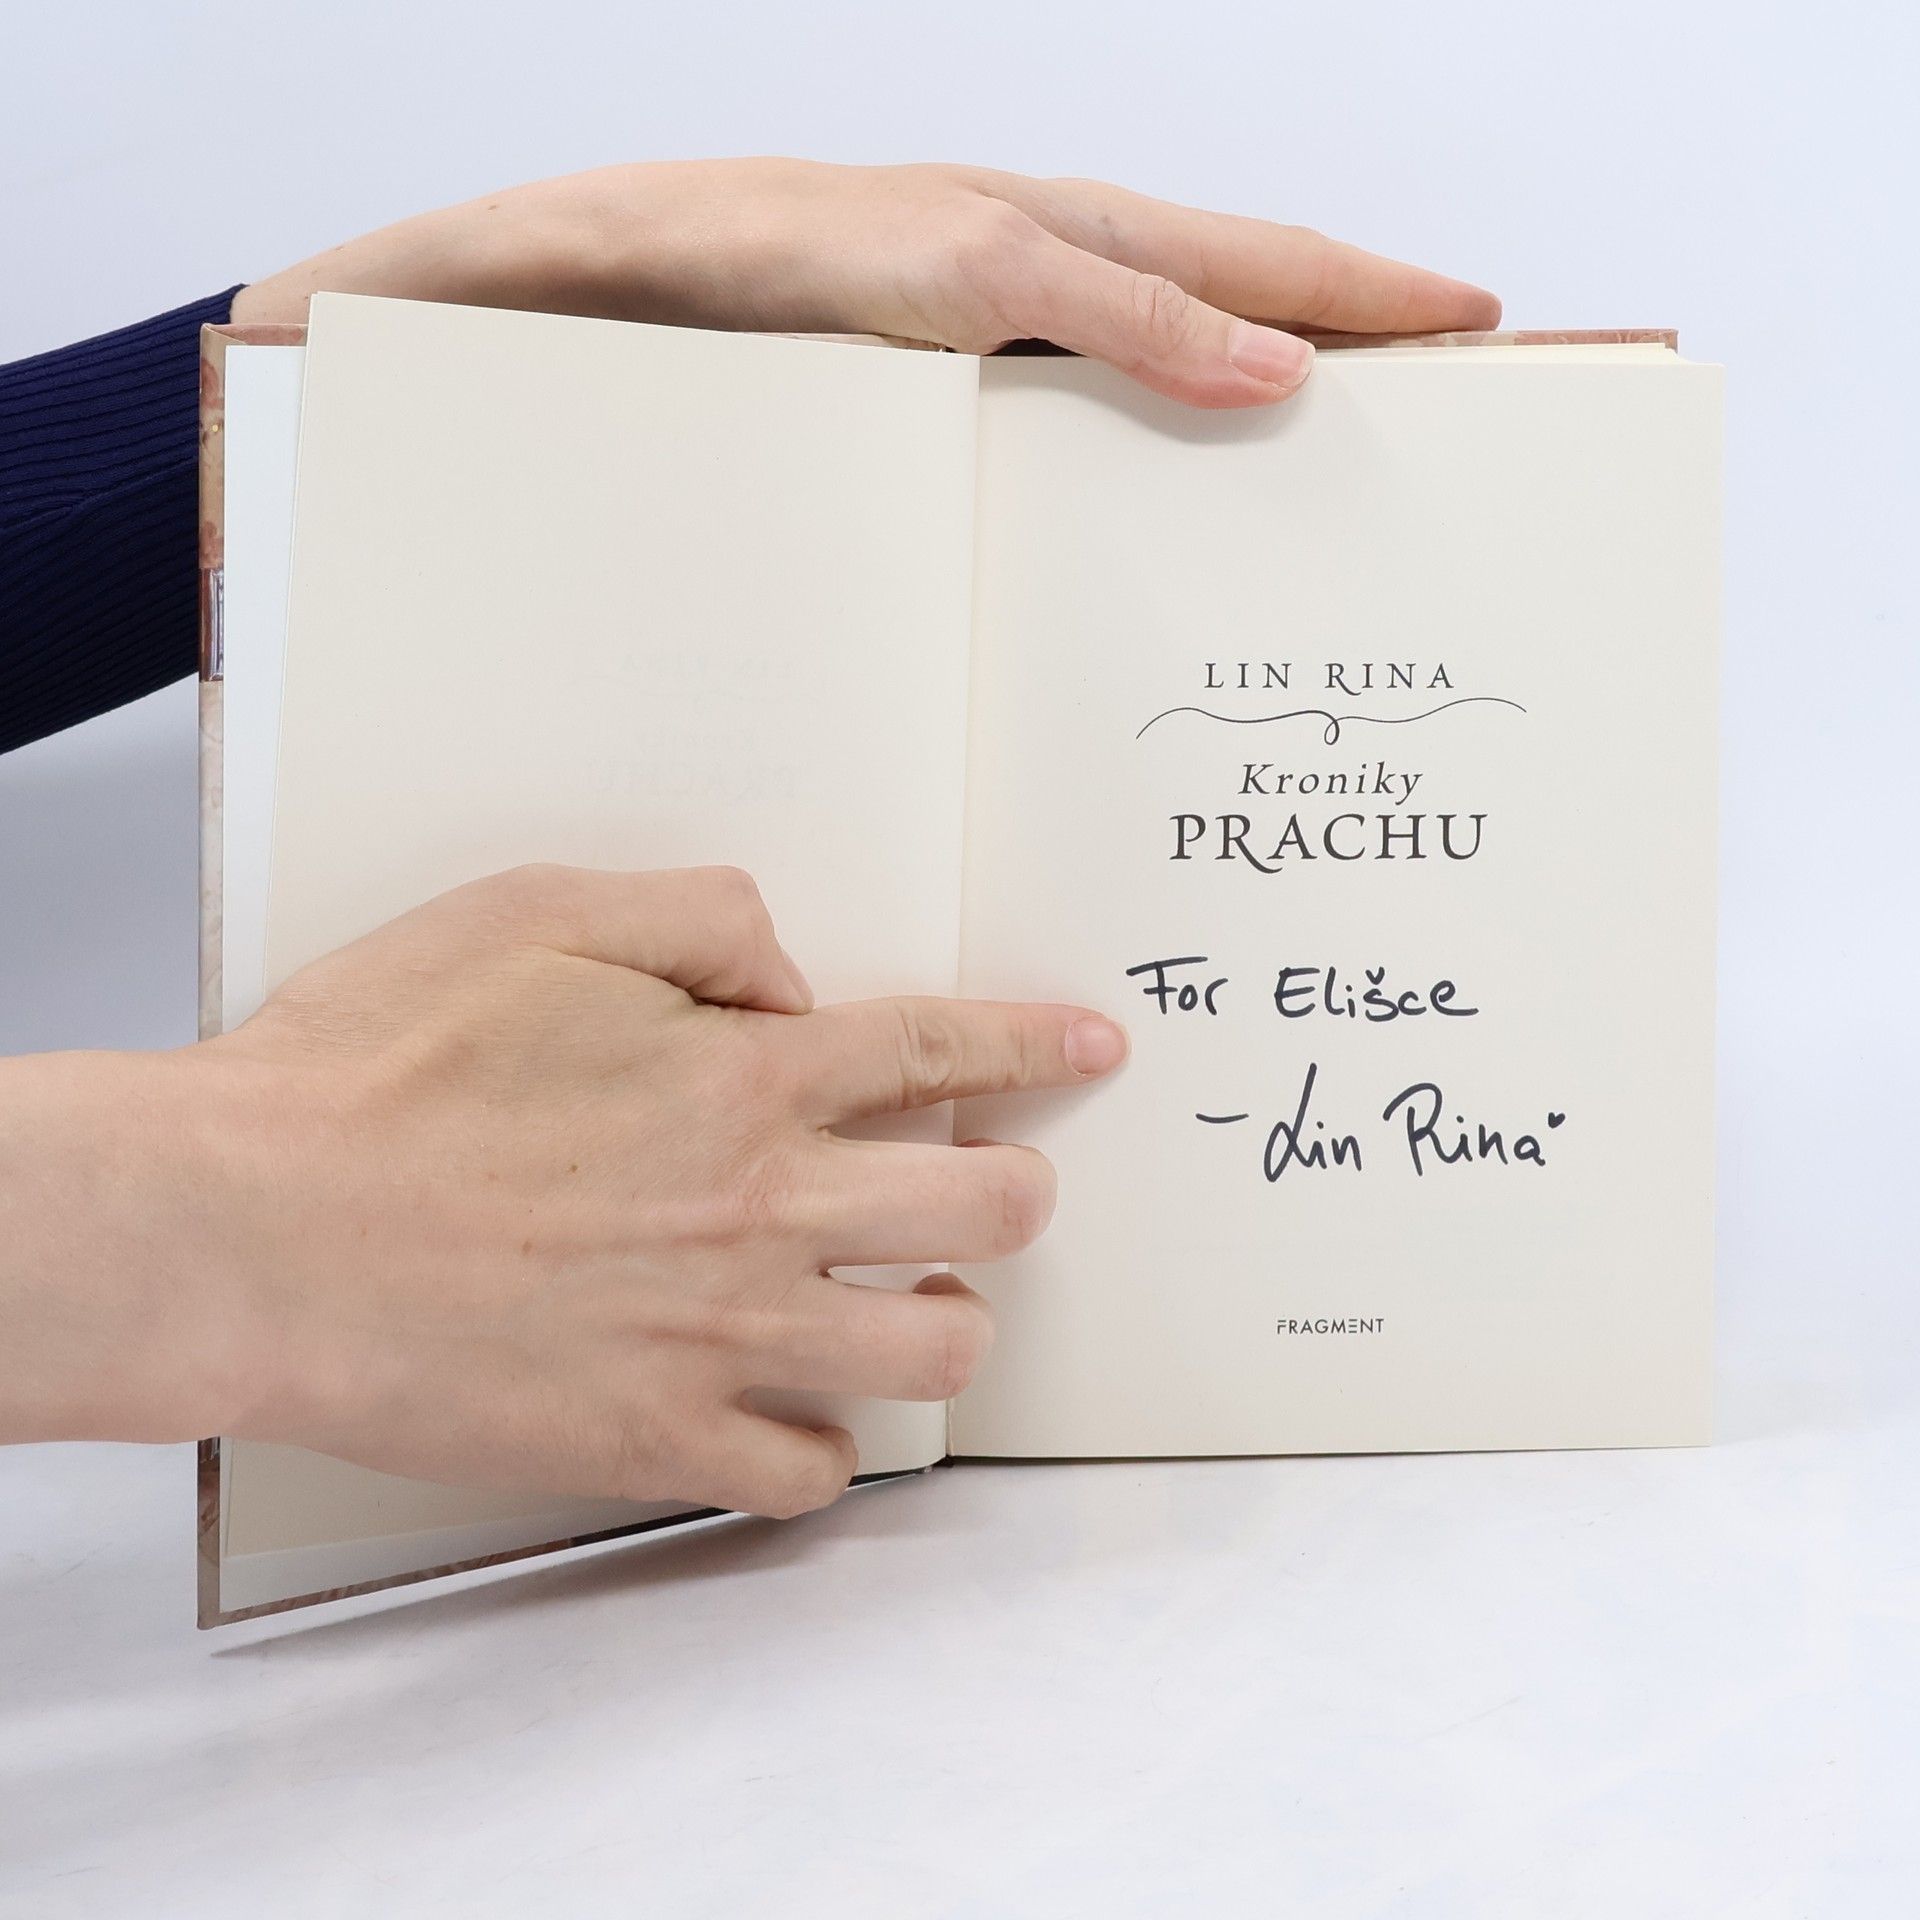 LIN RINA
Kroniky
PRACHU
For Elišce
– Lin Rina
FRAGMENT